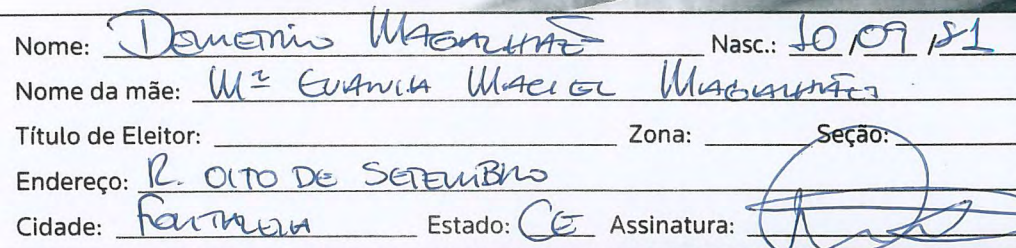 Nome: Demetrio Magalhães Nasc.: 10/09/81
Nome da mãe: Mª Evania Maciel Magalhães
Título de Eleitor: Zona: Seção:
Endereço: R. OITO DE SETEMBRO
Cidade: Fortaleza Estado: CE Assinatura: